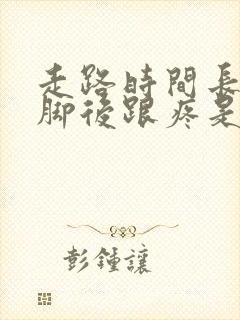 走路時間長
脚後跟疼是
彭鍾讓